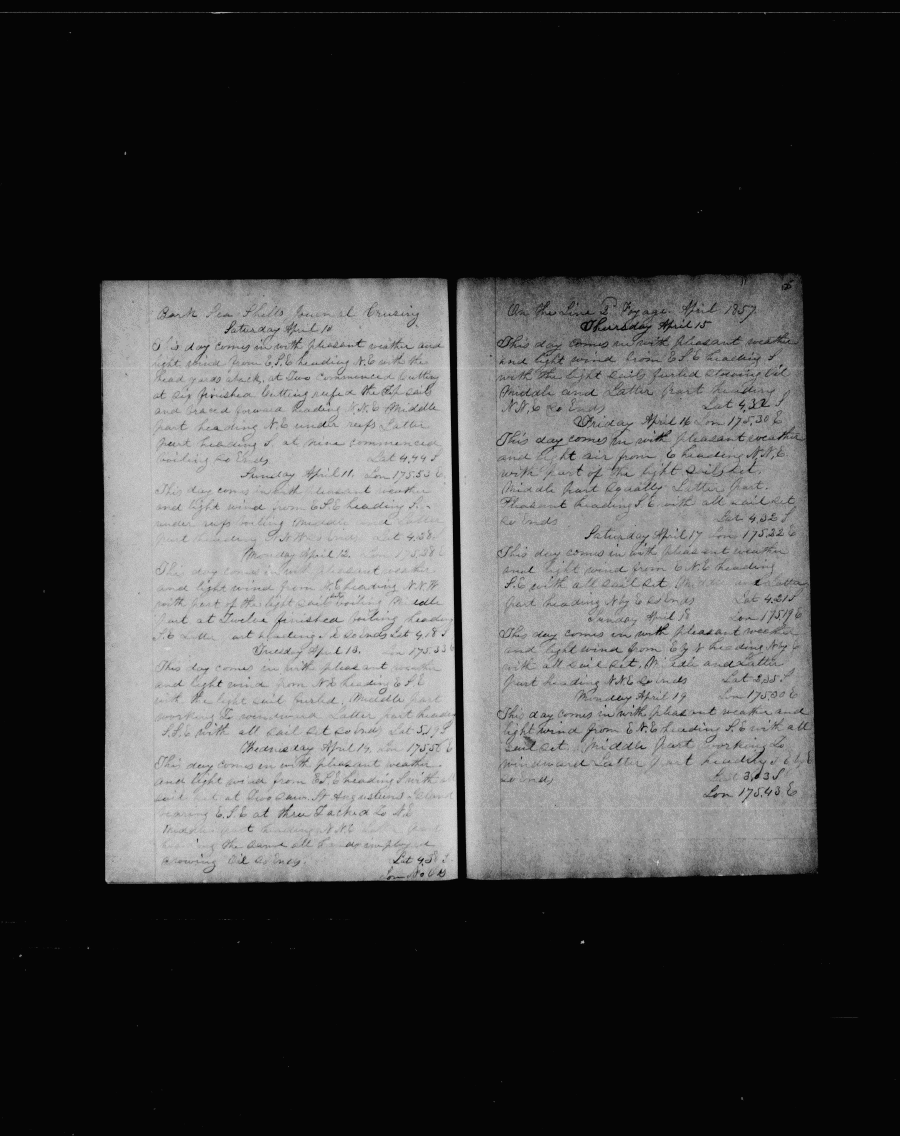 Bark Sea Shells Journal Cruising
Saturday April 10
This day comes in with pleasant weather and
light wind from E.S.E heading N.E with the
head yards aback, at Two commenced Cutting
at Six finished Cutting reefed the top sails
and braced forward heading N.N.E Middle
part heading N.E under reefs Latter
part heading S. at nine commenced
boiling So Ends Lat 4.44 S
Sunday April 11. Lon 175.53 E
This day comes in with pleasant weather
and light wind from E.S.E heading S.
under reefs boiling Middle and Latter
part heading N.N.W So Ends Lat 4.38
Monday April 12. Lon 175.38 E
This day comes in with pleasant weather
and light wind from N.E heading N.N.W
with part of the light sail set boiling Middle
part at Twelve finished boiling heading
S.E Latter part heading So Ends Lat 4.18 S
Tuesday April 13. Lon 175.33 E
This day comes in with pleasant weather
and light wind from N.E heading E.S.E
with the light sail furled. Middle part
working To windward Latter part heading
S.S.E with all sail set So Ends Lat 5.19 S
Wednesday April 14. Lon 175.56 E
This day comes in with pleasant weather
and light wind from E.S.E heading S with all
sail set at Two Saw St Augusteens Island
bearing E.S.E at three Tacked to N.E
Middle part heading N.N.E Latter part
heading the same all hands employed
stowing Oil So Ends. Lat 4.58 S
Lon No Obs
On the Line 5 Voyage April 1857
Thursday April 15
This day comes in with pleasant weather
and light wind from E.S.E heading S
with the light sails furled stowing Oil
Middle and Latter part heading
N.N.E So Ends Lat 4.32 S
Friday April 16 Lon 175.30 E
This day comes in with pleasant weather
and light air from E heading N.N.E
with part of the light sails set.
Middle part squally Latter part.
Pleasant heading S.E with all sail set
So Ends Lat 4.32 S
Saturday April 17 Lon 175.22 E
This day comes in with pleasant weather
and light wind from E.N.E heading
S.E with all sail set Middle and Latter
part heading N by E So Ends Lat 4.21 S
Sunday April 18 Lon 175.19 E
This day comes in with pleasant weather
and light wind from E by N heading N by E
with all sail set, Middle and Latter
part heading N.N.E So Ends Lat 3.35 S
Monday April 19 Lon 175.30 E
This day comes in with pleasant weather and
light wind from E.N.E heading S.E with all
sail set Middle part working to
windward Latter part heading S.E by E
So Ends Lat 3.03 S
Lon 175.43 E